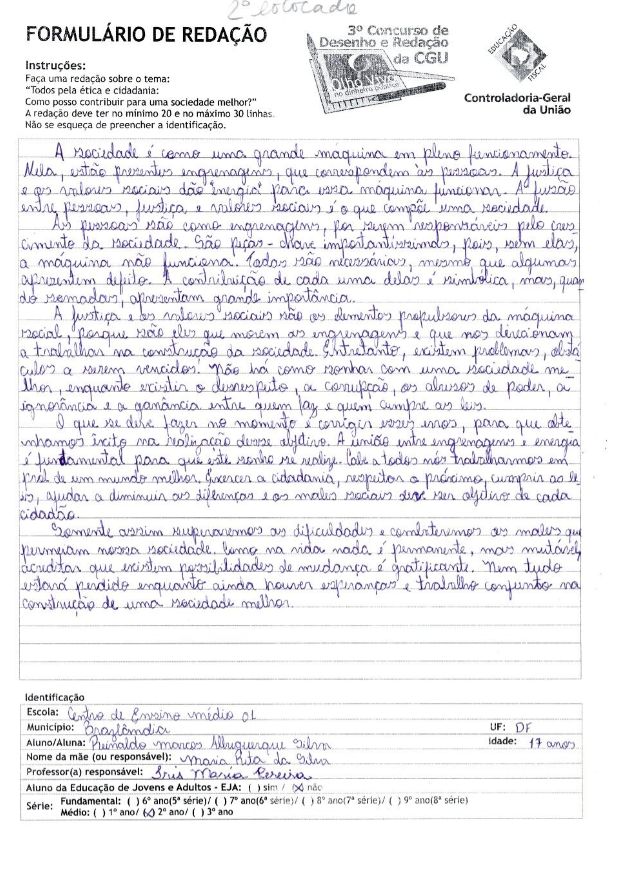 2º colocado
FORMULÁRIO DE REDAÇÃO
3º Concurso de
Desenho e Redação
da CGU
Olho Vivo
no dinheiro público
EDUCAÇÃO
FISCAL
Controladoria-Geral
da União
Instruções:
Faça uma redação sobre o tema:
"Todos pela ética e cidadania:
Como posso contribuir para uma sociedade melhor?"
A redação deve ter no mínimo 20 e no máximo 30 linhas.
Não se esqueça de preencher a identificação.
A sociedade é como uma grande máquina em pleno funcionamento.
Nela, estão presentes engrenagens, que correspondem às pessoas. A justiça
e os valores sociais dão "energia" para essa máquina funcionar. A fusão
entre pessoas, justiça, e valores sociais é o que compõe uma sociedade.
As pessoas são como engrenagens, por serem responsáveis pelo cres-
cimento da sociedade. São peças-chave importantíssimas, pois, sem elas,
a máquina não funciona. Todos são necessárias, mesmo que algumas
apresentem defeito. A contribuição de cada uma delas é simbólica, mas, quan
do somadas, apresentam grande importância.
A justiça e os valores sociais são os elementos propulsores da máquina
social, porque são eles que movem as engrenagens e que nos direcionam
a trabalhar na construção da sociedade. Entretanto, existem problemas, obstá
culos a serem vencidos. Não há como sonhar com uma sociedade me-
lhor, enquanto existir o desrespeito, a corrupção, os abusos de poder, a
ignorância e a ganância entre quem faz e quem cumpre as leis.
O que se deve fazer no momento é corrigir esses erros, para que obte-
nhamos êxito na realização desse objetivo. A união entre engrenagens e energia
é fundamental para que este sonho se realize. Cabe a todos nós trabalharmos em
prol de um mundo melhor. Exercer a cidadania, respeitar o próximo, cumprir as le
is, ajudar a diminuir as diferenças e os males sociais deve ser objetivo de cada
cidadão.
Somente assim superaremos as dificuldades e combateremos os males que
permeiam nossa sociedade. Como na vida nada é permanente, mas mutável,
acreditar que existem possibilidades de mudança é gratificante. Nem tudo
estará perdido enquanto ainda houver esperanças e trabalho conjunto na
construção de uma sociedade melhor.
Identificação
Escola: Centro de Ensino médio 01
Município: Brazlândia UF: DF
Aluno/Aluna: Reinaldo marcos Albuquerque Silva Idade: 17 anos
Nome da mãe (ou responsável): Maria Rita da Silva
Professor(a) responsável: Iris Maria Pereira
Aluno da Educação de Jovens e Adultos - EJA: ( ) sim / (x) não
Série: Fundamental: ( ) 6º ano(5ª série)/ ( ) 7º ano(6ª série)/ ( ) 8º ano(7ª série)/ ( ) 9º ano(8ª série)
Médio: ( ) 1º ano/ (x) 2º ano/ ( ) 3º ano